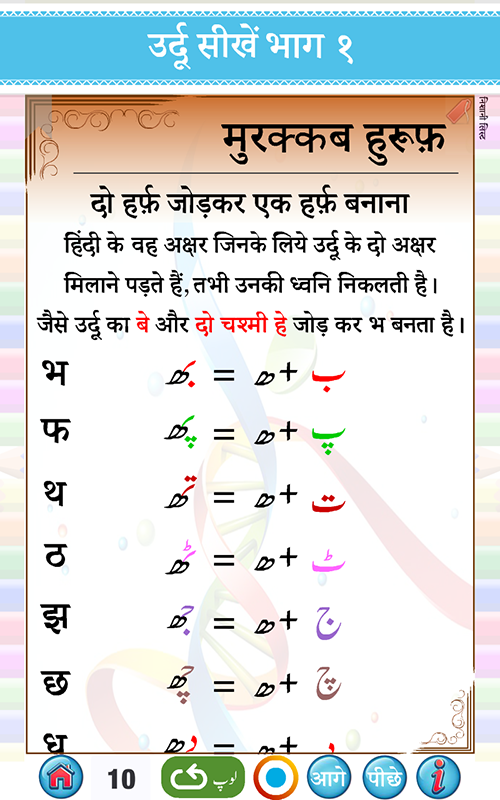 उर्दू सीखें भाग १
निशानी लिस्ट
मुरक्कब हुरूफ़
दो हर्फ़ जोड़कर एक हर्फ़ बनाना
हिंदी के वह अक्षर जिनके लिये उर्दू के दो अक्षर
मिलाने पड़ते हैं, तभी उनकी ध्वनि निकलती है।
जैसे उर्दू का बे और दो चश्मी हे जोड़ कर भ बनता है।
भ بھ = ھ + ب
फ پھ = ھ + پ
थ تھ = ھ + ت
ठ ٹھ = ھ + ٹ
झ جھ = ھ + ج
छ چھ = ھ + چ
ध دھ = ھ + د
10 لوپ आगे पीछे i